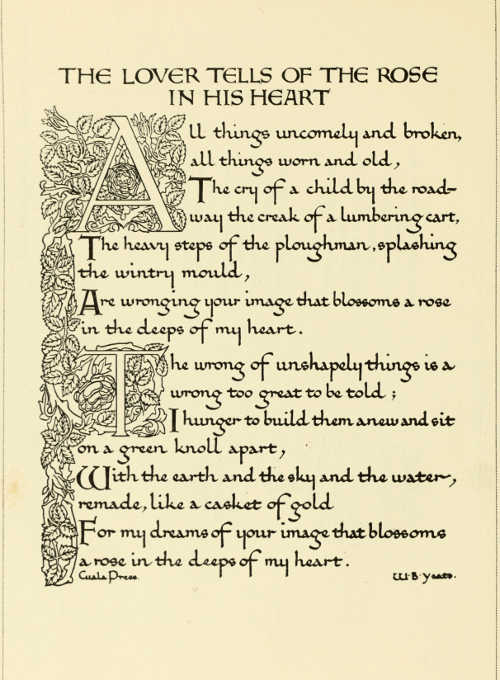 THE LOVER TELLS OF THE ROSE
IN HIS HEART
All things uncomely and broken,
all things worn and old,
The cry of a child by the road-
way the creak of a lumbering cart,
The heavy steps of the ploughman, splashing
the wintry mould,
Are wronging your image that blossoms a rose
in the deeps of my heart.
The wrong of unshapely things is a
wrong too great to be told;
I hunger to build them anew and sit
on a green knoll apart,
With the earth and the sky and the water,
remade, like a casket of gold
For my dreams of your image that blossoms
a rose in the deeps of my heart.
Cuala Press.
W·B·Yeats.